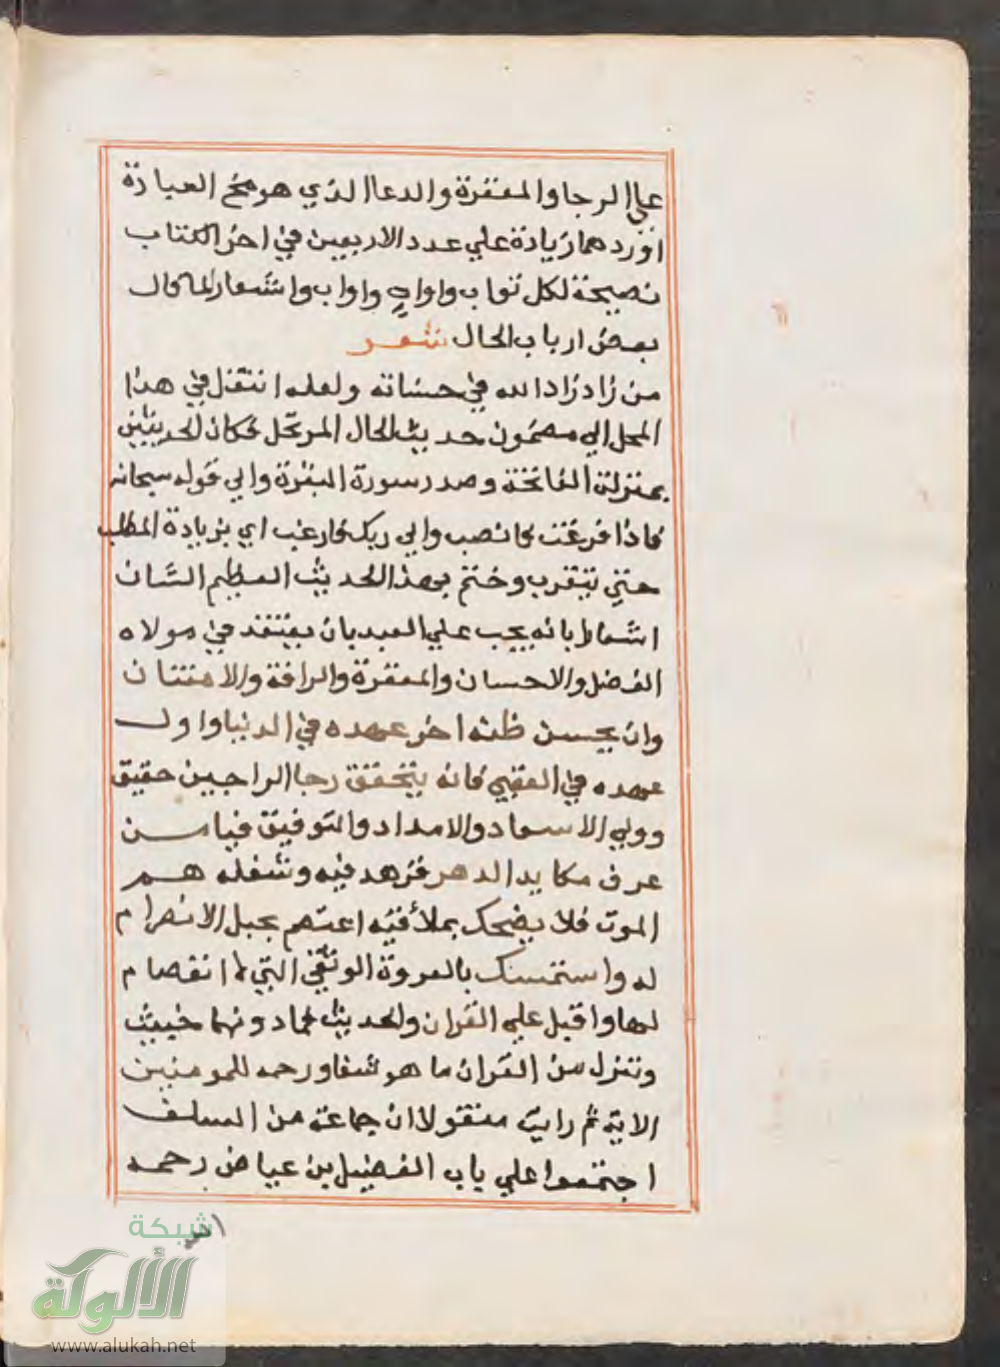 علي الرجا والمغفرة والدعا الذي هو مخ العبادة
اوردهما زيادة علي عدد الاربعين في اخر الكتاب
نصيحة لكل تواب واواه واواب واشعارا لما قال
بعض ارباب الحال شعر
من زاد زاد الله في حسناته ولعله انتقل في هذا
المحل الي مضمون حديث الحال المرتحل فكان الحديثين
بمنزلة الفاتحة وصدر سورة البقرة والي قوله سبحانه
فاذا فرغت فانصب والي ربك فارغب اي بزيادة المطلب
حتي تتقرب وختم بهذا الحديث العظيم الشان
اشعارا بانه يجب علي العبد بان يعتقد في مولاه
الفضل والاحسان والمغفرة والرافة والامتنان
وان يحسن ظنه اخر عهده في الدنيا واول
عهده في العقبي فانه بتحقق رجا الراجين حقيق
وولي الاسعاد والامداد والتوفيق فيا من
عرف مكايد الدهر فزهد فيه وشغله هم
الموت فلا يضحك بملأ فيه اعتصم بحبل لا انصرام
له واستمسك بالعروة الوثقي التي لا انفصام
لها واقبل علي القران والحديث فما دونهما خبيث
وننزل من القران ما هو شفا ورحمه للمومنين
الاية ثم رايت منقولا ان جماعة من السلف
اجتمعوا علي باب الفضيل بن عياض رحمه
الله
شبكة
الألوكة
www.alukah.net